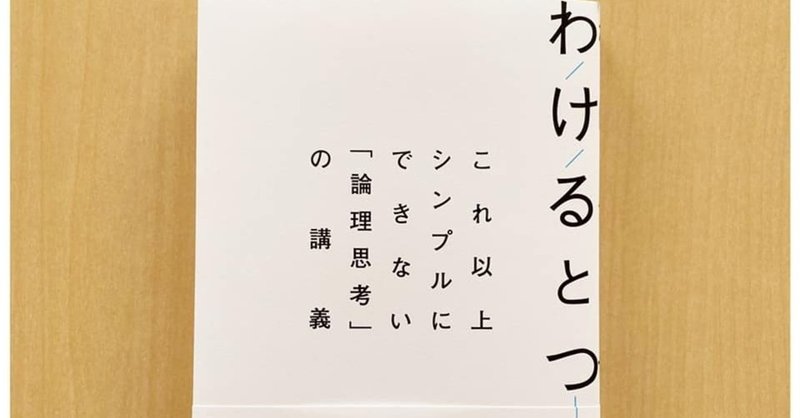 わけるとつ
これ以上
シンプルに
できない
「論理思考」
の講義